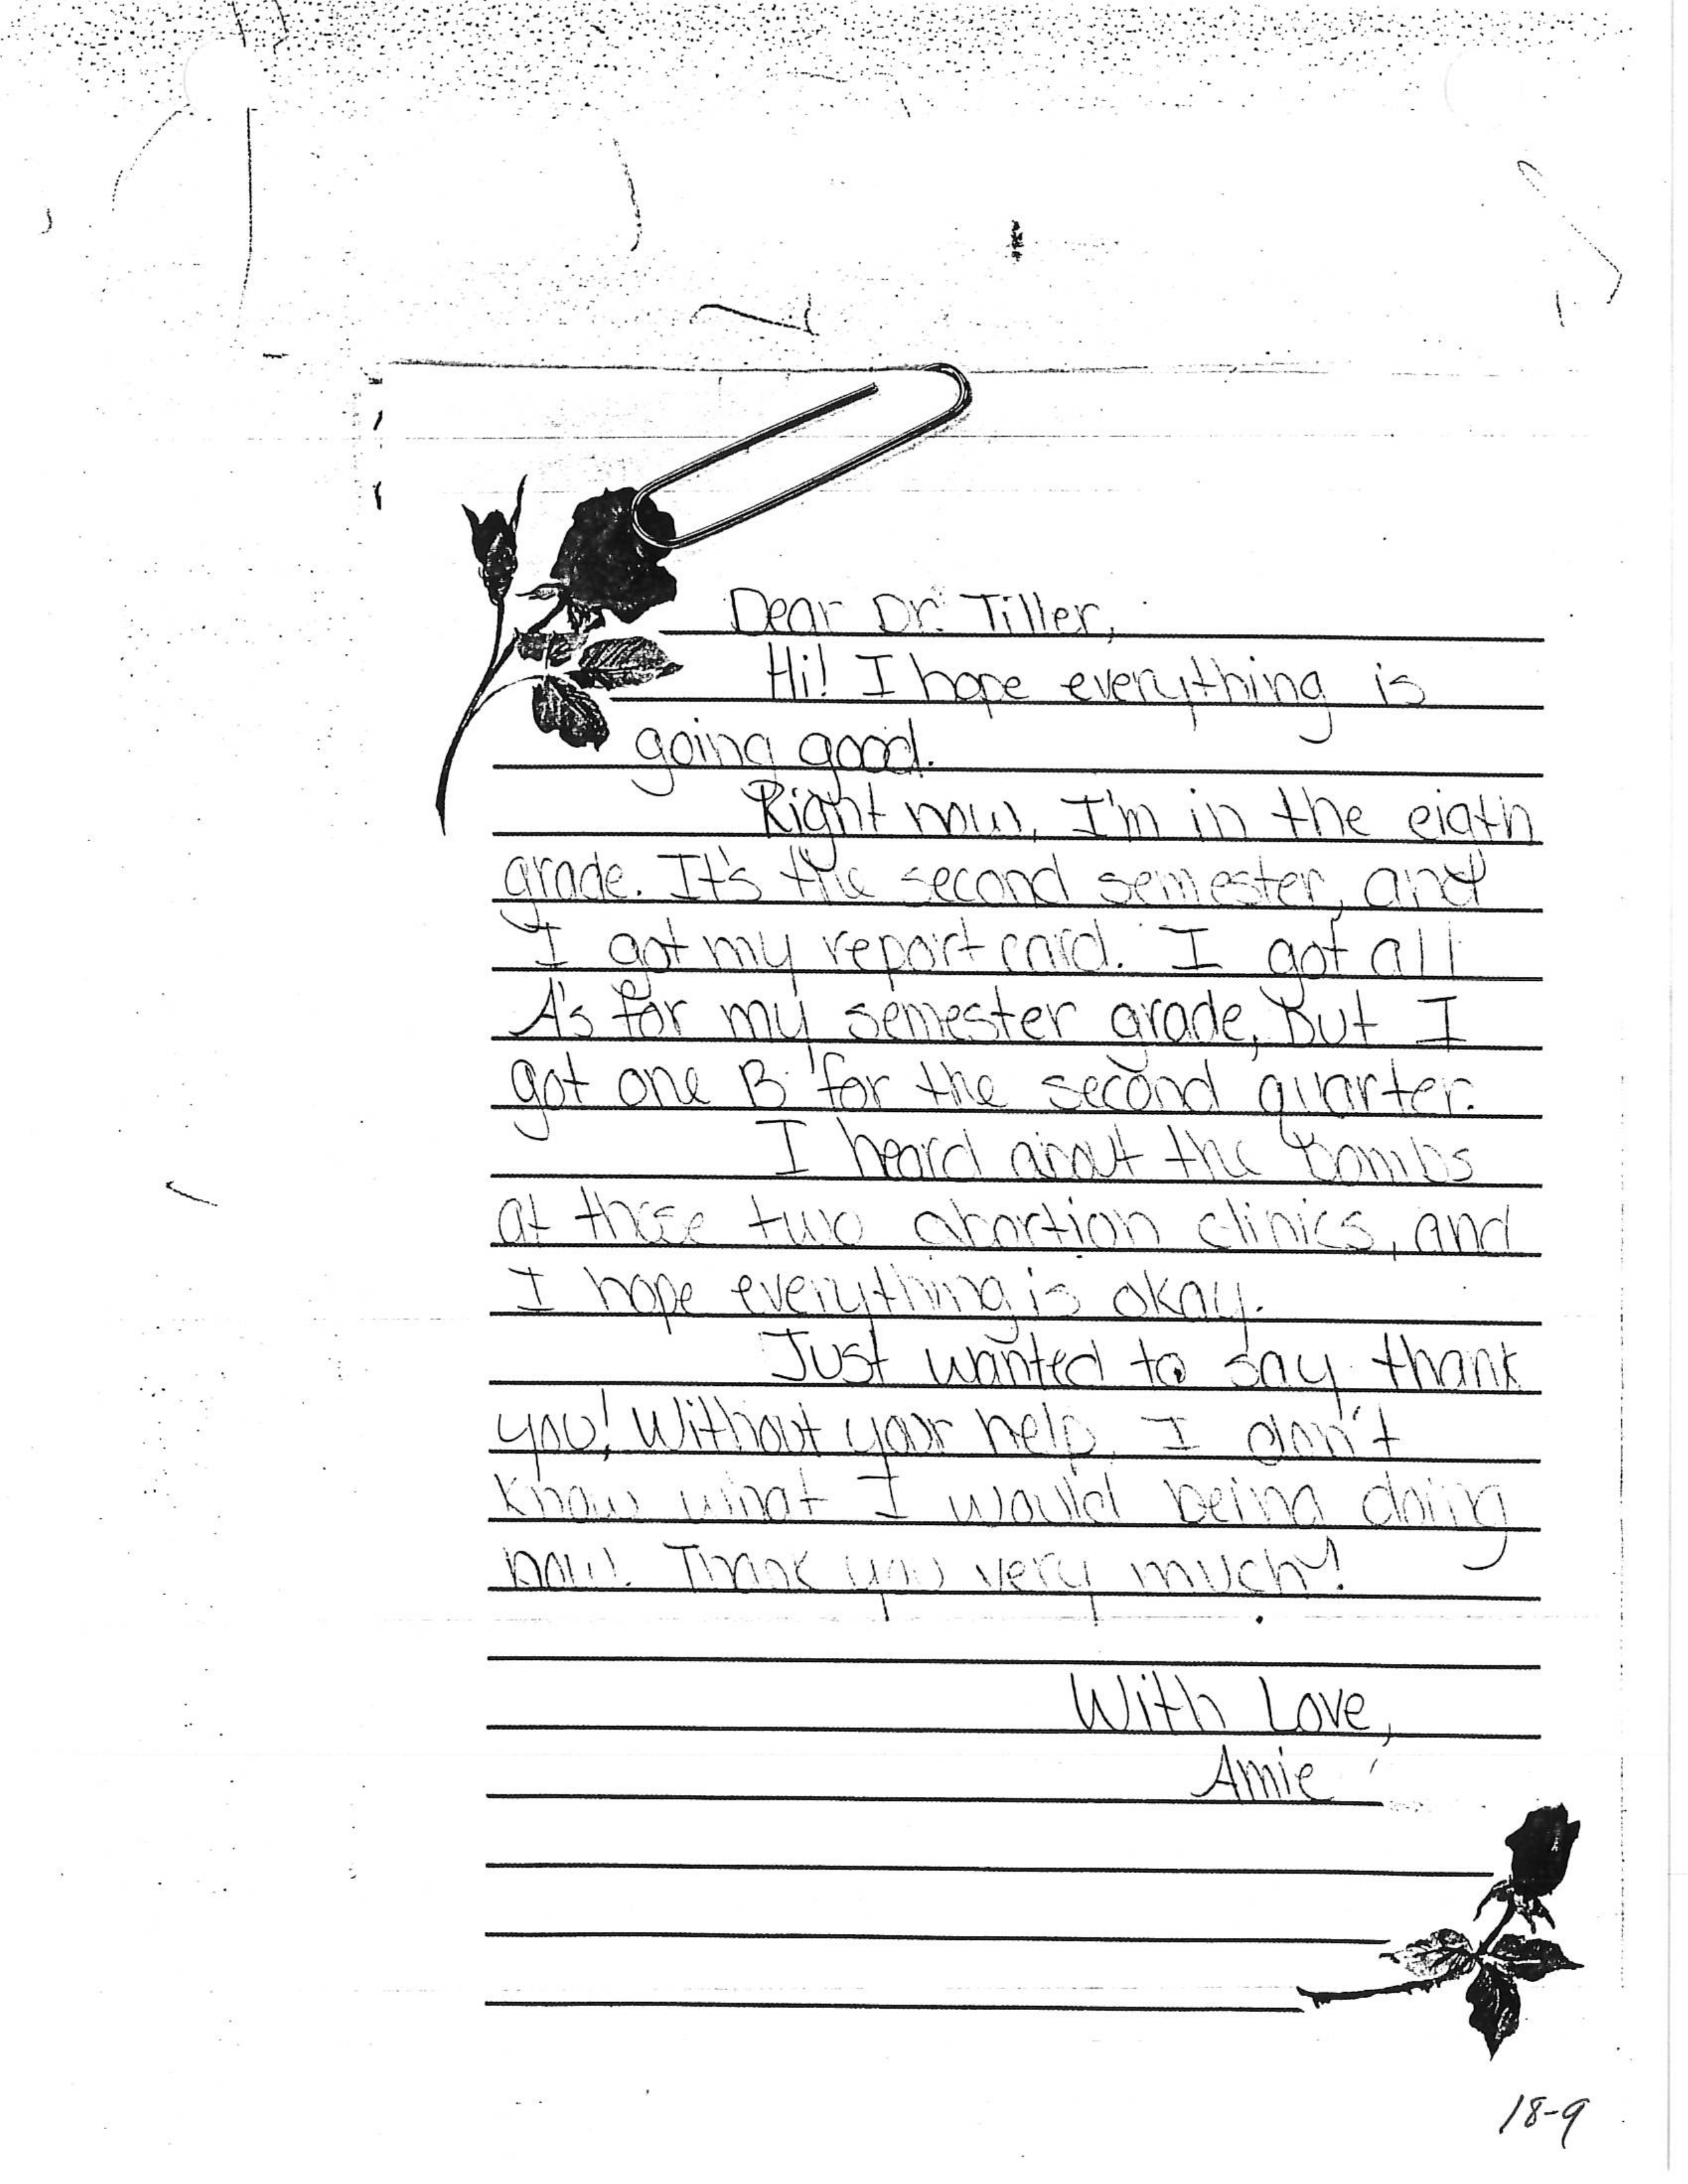 Dear Dr. Tiller,
Hi! I hope everything is
going good.
Right now, I'm in the eigth
grade. It's the second semester, and
I got my report card. I got all
A's for my semester grade, But I
got one B for the second quarter.
I heard about the bombs
at those two abortion clinics, and
I hope everything is okay.
Just wanted to say thank
you! Without your help, I don't
know what I would being doing
now! Thank you very much!
With Love,
Amie
18-9